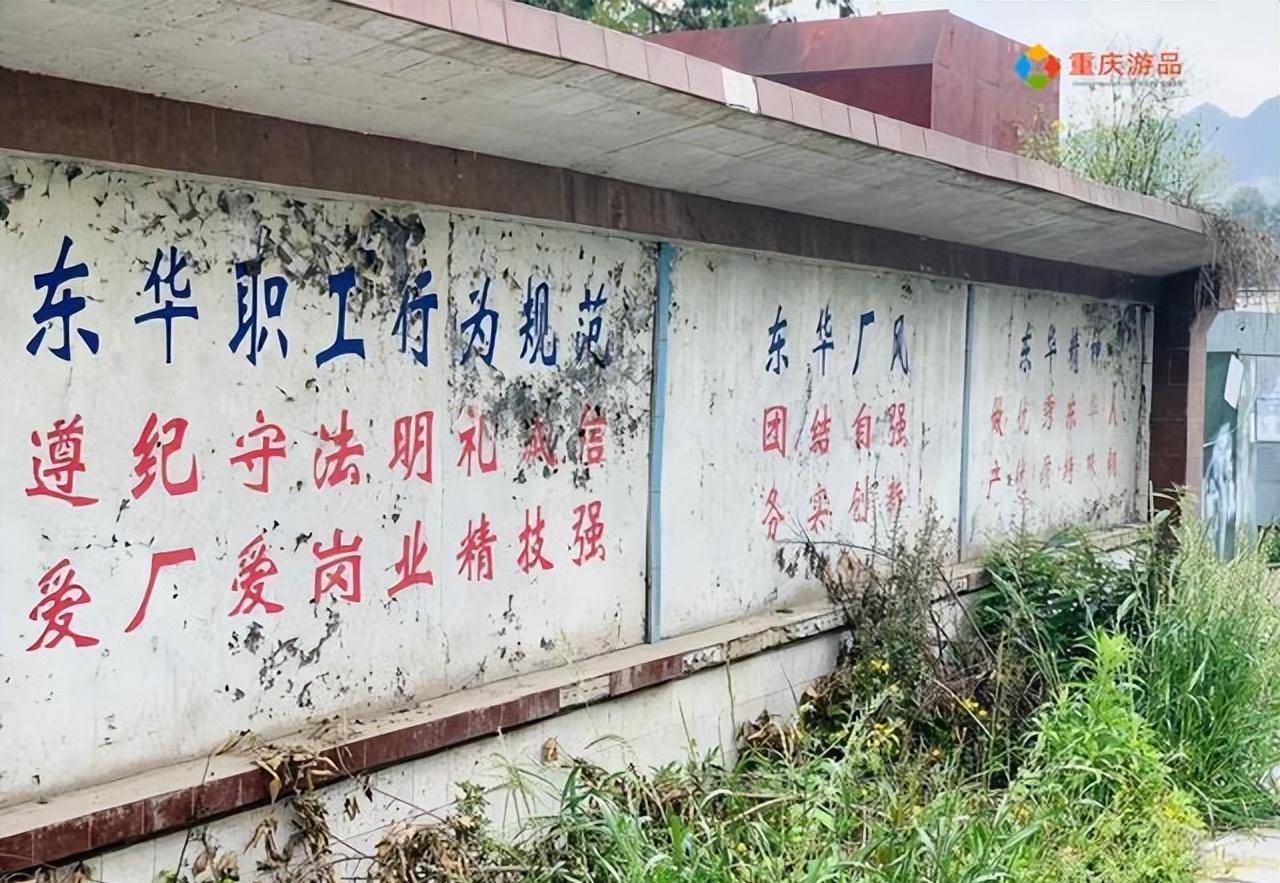 重庆游品
东华职工行为规范
遵纪守法明礼诚信
爱厂爱岗敬业精技强
东华厂风
团结自强
务实创新
东华精神
做优秀东华人
产